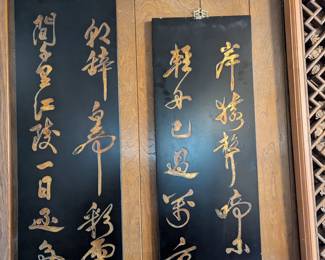 朝辭白帝彩雲
間千里江陵一日還
岸猿聲啼不
輕舟已過萬重